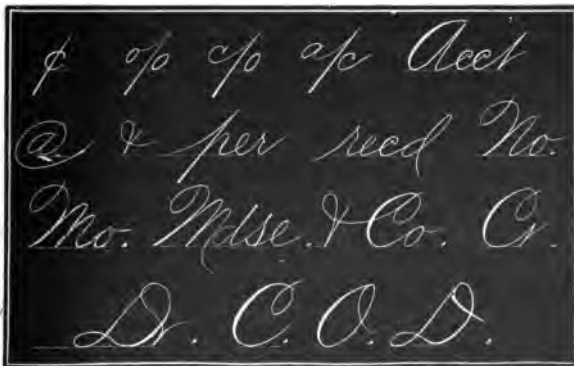 ¢ % c/o a/c Acct
@ & per recd No.
Mo. Mdse. & Co. Cr.
Dr. C. O. D.